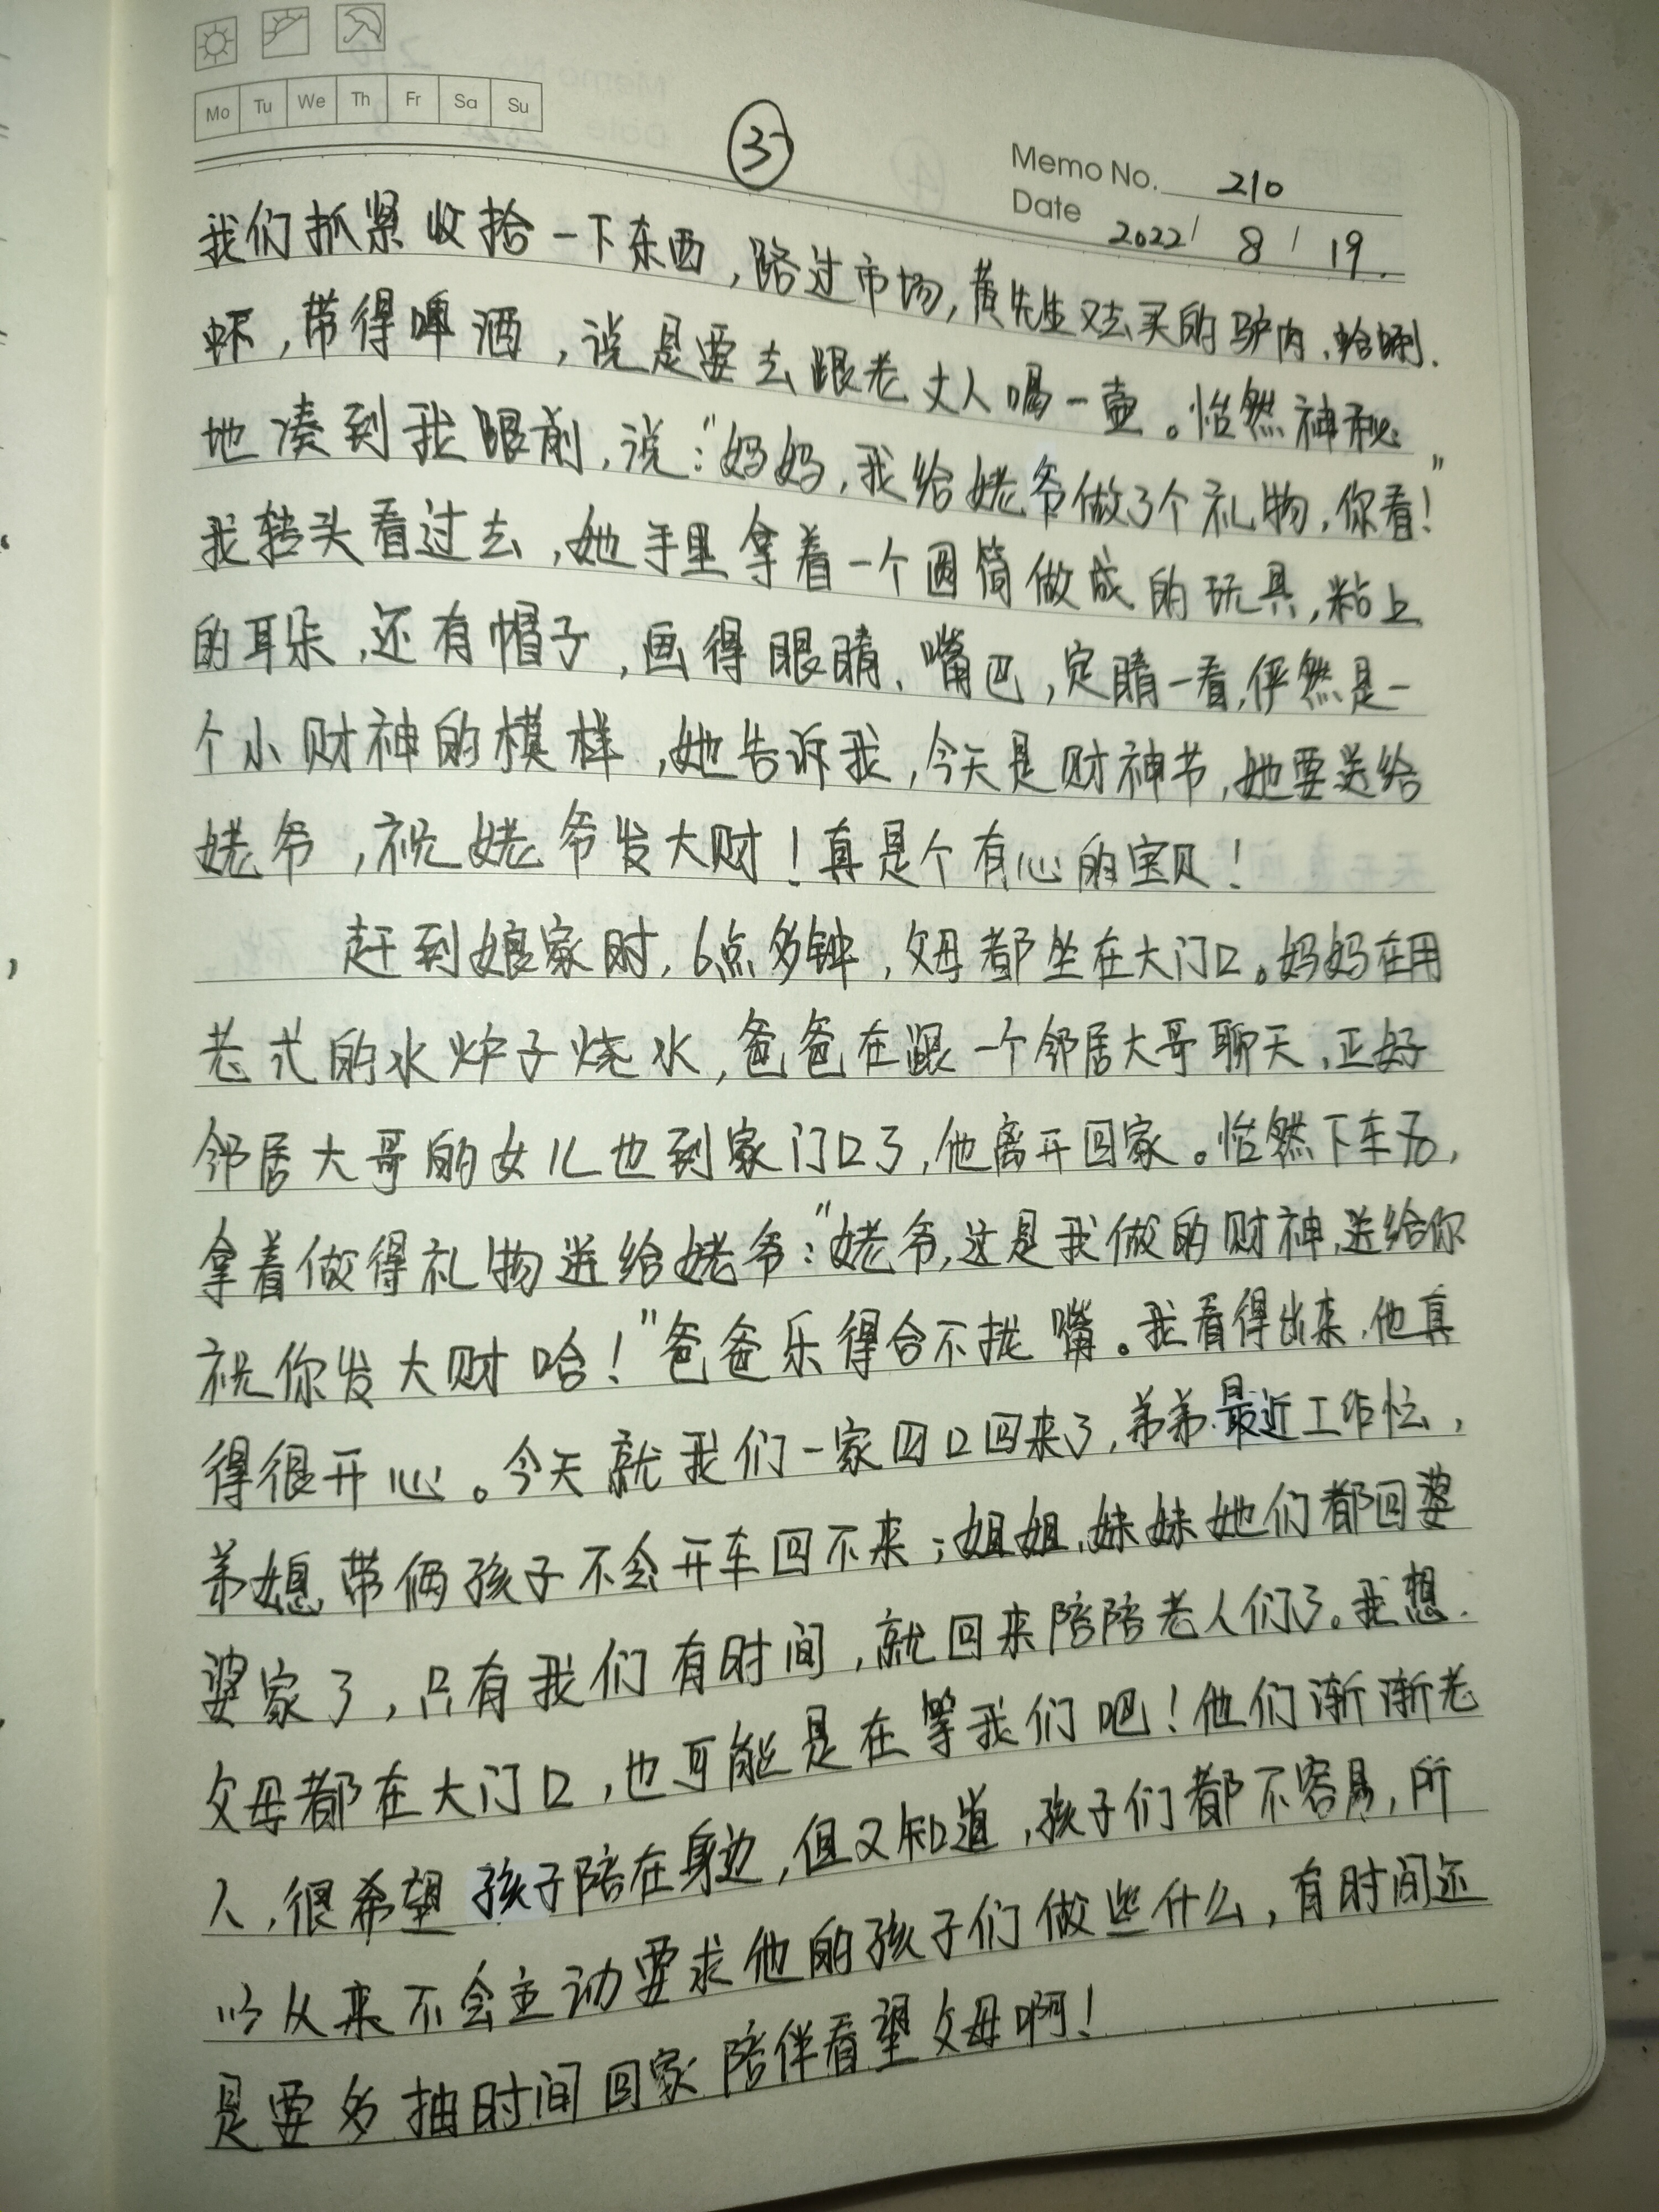 Mo Tu We Th Fr Sa Su
③
Memo No. 210
Date 2022/ 8 / 19.
我们抓紧收拾一下东西,路过市场,黄先生又去买的驴肉、蛤蜊、
虾,带得啤酒,说是要去跟老丈人喝一壶。怡然神秘
地凑到我眼前,说:“妈妈,我给姥爷做了个礼物,你看!”
我转头看过去,她手里拿着一个圆筒做成的玩具,粘上
的耳朵,还有帽子,画得眼睛、嘴巴,定睛一看,俨然是一
个小财神的模样,她告诉我,今天是财神节,她要送给
姥爷,祝姥爷发大财!真是个有心的宝贝!
赶到娘家时,6点多钟,父母都坐在大门口。妈妈在用
老式的水炉子烧水,爸爸在跟一个邻居大哥聊天,正好
邻居大哥的女儿也到家门口了,他离开回家。怡然下车后,
拿着做得礼物送给姥爷:“姥爷,这是我做的财神,送给你
祝你发大财哈!”爸爸乐得合不拢嘴。我看得出来,他真
得很开心。今天就我们一家四口回来了,弟弟最近工作忙,
弟媳带俩孩子不会开车回不来;姐姐、妹妹她们都回婆
婆家了,只有我们有时间,就回来陪陪老人们了。我想
父母都在大门口,也可能是在等我们吧!他们渐渐老
人,很希望孩子陪在身边,但又知道,孩子们都不容易,所
以从来不会主动要求他的孩子们做些什么,有时间还
是要多抽时间回家陪伴看望父母啊!